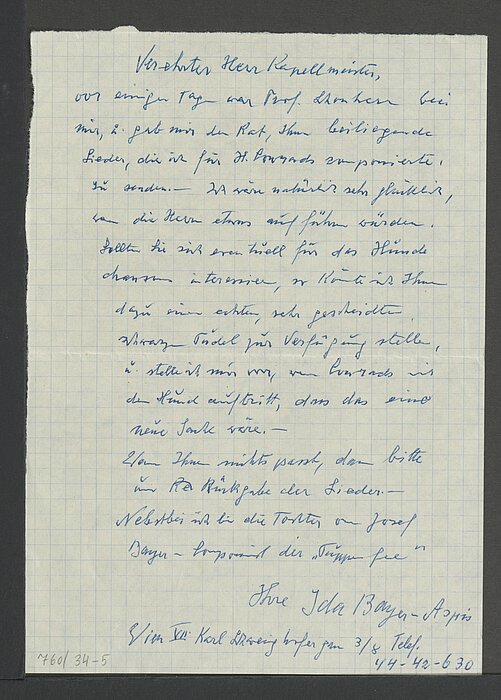 Verehrter Herr Kapellmeister,
vor einigen Tagen war Prof. bei
mir, u. gab mir den Rat, Ihnen beiliegende
Lieder, die ich für H. Conrads komponierte,
zu senden.— Ich wäre natürlich sehr glücklich,
wenn die Herrn etwas aufführen würden.
Sollten Sie sich eventuell für das Hunde
chanson interessieren, so könnte ich Ihnen
dazu einen echten, sehr gescheidten
schwarzen Pudel zur Verfügung stellen,
u. stelle ich mir vor, wenn Conrads mit
dem Hund auftritt, dass das eine
neue Sache wäre.—
Wenn Ihnen nichts passt, dann bitte
um Rückgabe der Lieder.—
Nebstbei ich bin die Tochter von Josef
Bayer – Componist der „Puppenfee"
Ihre Ida Bayer-Aspis
Wien XII Karl 3/8 Telef.
44-42-630
760/34-5